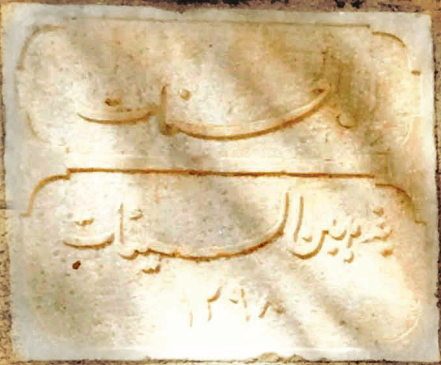 الحسنات
يذهبن السيئات
١٢٩٨